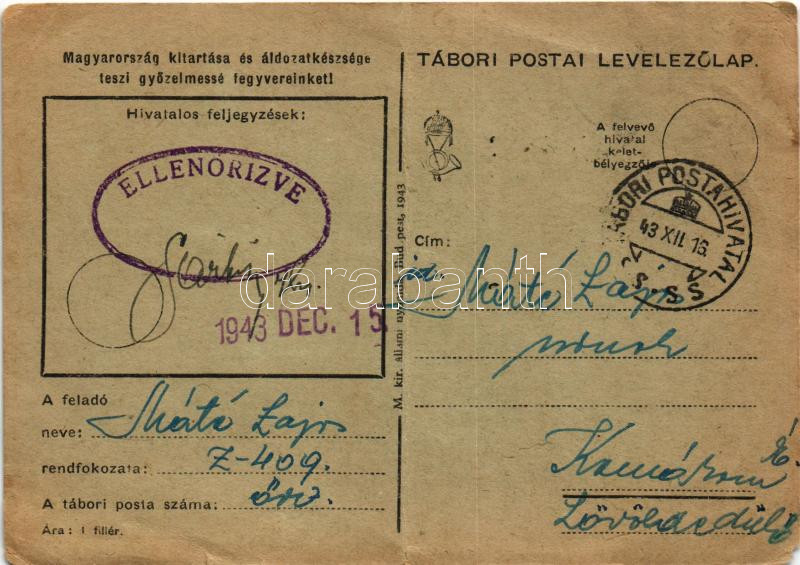 Magyarország kitartása és áldozatkészsége
teszi győzelmessé fegyvereinket!
Hivatalos feljegyzések:
ELLENŐRIZVE
1943 DEC. 15
A feladó
neve: Máté Lajos
rendfokozata: Z-409.
A tábori posta száma: őrv.
Ára: 1 fillér.
M. kir. állami nyomda, Budapest, 1943
TÁBORI POSTAI LEVELEZŐLAP.
A felvevő
hivatal
kelet-
bélyegzője
TÁBORI POSTAHIVATAL
43 XII. 16.
Cím:
id. Máté Lajos
úrnak
Komárom
darabanth.com